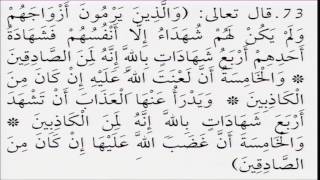 73. قال تعالى: (وَالَّذِينَ يَرْمُونَ أَزْوَاجَهُمْ
وَلَمْ يَكُنْ لَهُمْ شُهَدَاءُ إِلَّا أَنْفُسُهُمْ فَشَهَادَةُ
أَحَدِهِمْ أَرْبَعُ شَهَادَاتٍ بِاللَّهِ إِنَّهُ لَمِنَ الصَّادِقِينَ
* وَالْخَامِسَةُ أَنَّ لَعْنَتَ اللَّهِ عَلَيْهِ إِنْ كَانَ مِنَ
الْكَاذِبِينَ * وَيَدْرَأُ عَنْهَا الْعَذَابَ أَنْ تَشْهَدَ
أَرْبَعَ شَهَادَاتٍ بِاللَّهِ إِنَّهُ لَمِنَ الْكَاذِبِينَ *
وَالْخَامِسَةَ أَنَّ غَضَبَ اللَّهِ عَلَيْهَا إِنْ كَانَ مِنَ
الصَّادِقِينَ)